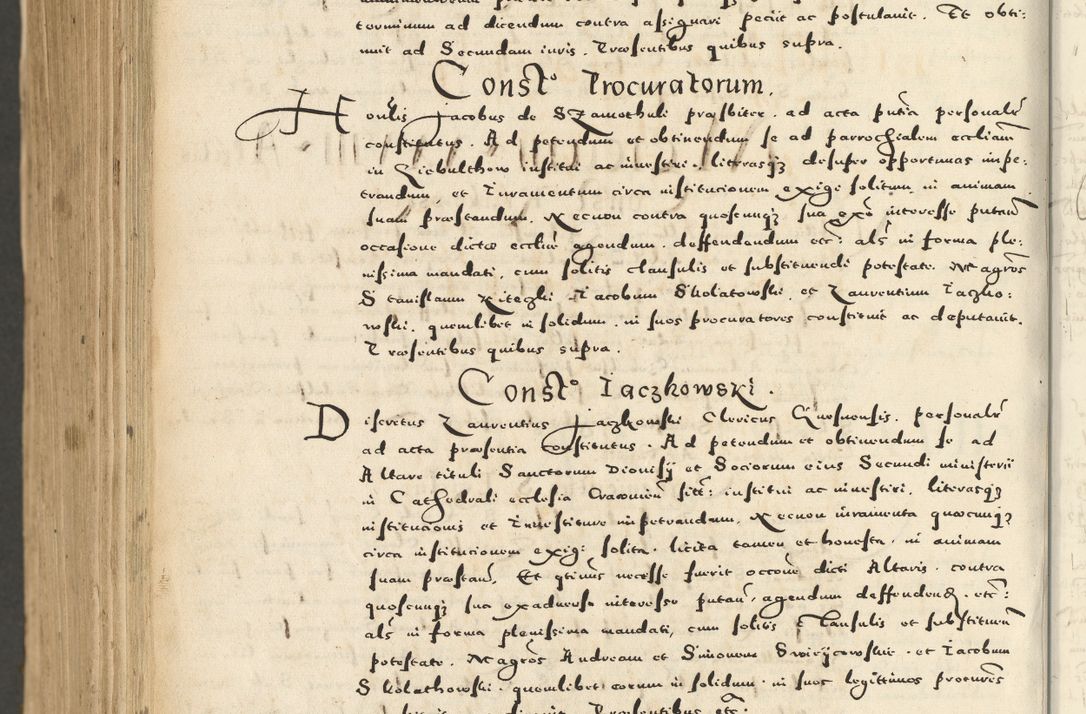 terminum ad dicendum contra assignari peciit ac postulavit. Et obti:
nuit ad Secundam iuris. Præsentibus quibus supra.
Const⁰ Procuratorum.
Honᷣlis Jacobus de SZamothuli præsbiter. ad acta pn̄tia personalr̄
constitutus. Ad petendum et obtinendum se ad parrochialem eccliam
in institui ac investiri. literasqꝫ desuper opportunas impe:
trandum, et Iuramentum circa institucionem exigi solitum in animam
suam præstandum. Necnon contra quoscunqꝫ sua exo interesse putan̄
occasione dictæ eccliæ agendum. deffendendum etc: als in forma ple:
nissima mandati, cum solitis clausulis et substituendi potestate. Magros
Stanislaum Jacobum Skolatowski, et Laurentium Iaczko:
wski. quemlibet in solidum. in suos procuratores constituit ac deputavit.
Præsentibus quibus supra.
Const⁰ Iaczkowski.
Discretus Laurentius Jaczkowski Clericus Gnesnensis. personalr̄
ad acta præsentia constitutus. Ad petendum et obtinendum se ad
Altare tituli Sanctorum Dionisij et Sociorum eius Secundi ministerii
in Cathedrali ecclesia Cracovien̄ sitt: institui ac investiri. literasqꝫ
institucionis et Investituræ impetrandum. Necnon iuramenta quæcunqꝫ
circa institucionem exigi solita. licita tamen et honesta. in animam
suam præstan̄. Et qtinus necesse fuerit occone dicti Altaris. contra
quoscunqꝫ sua exadverso interesse putan̄. agendum deffenden̄. etc:
als in forma plenissima mandati, cum solitis Clausulis et substituen̄
potestate. Magros Andream et Simonem et Iacobum
Skolathowski. quemlibet eorum in solidum. in suos legittimos procures
Præsentibus etc: